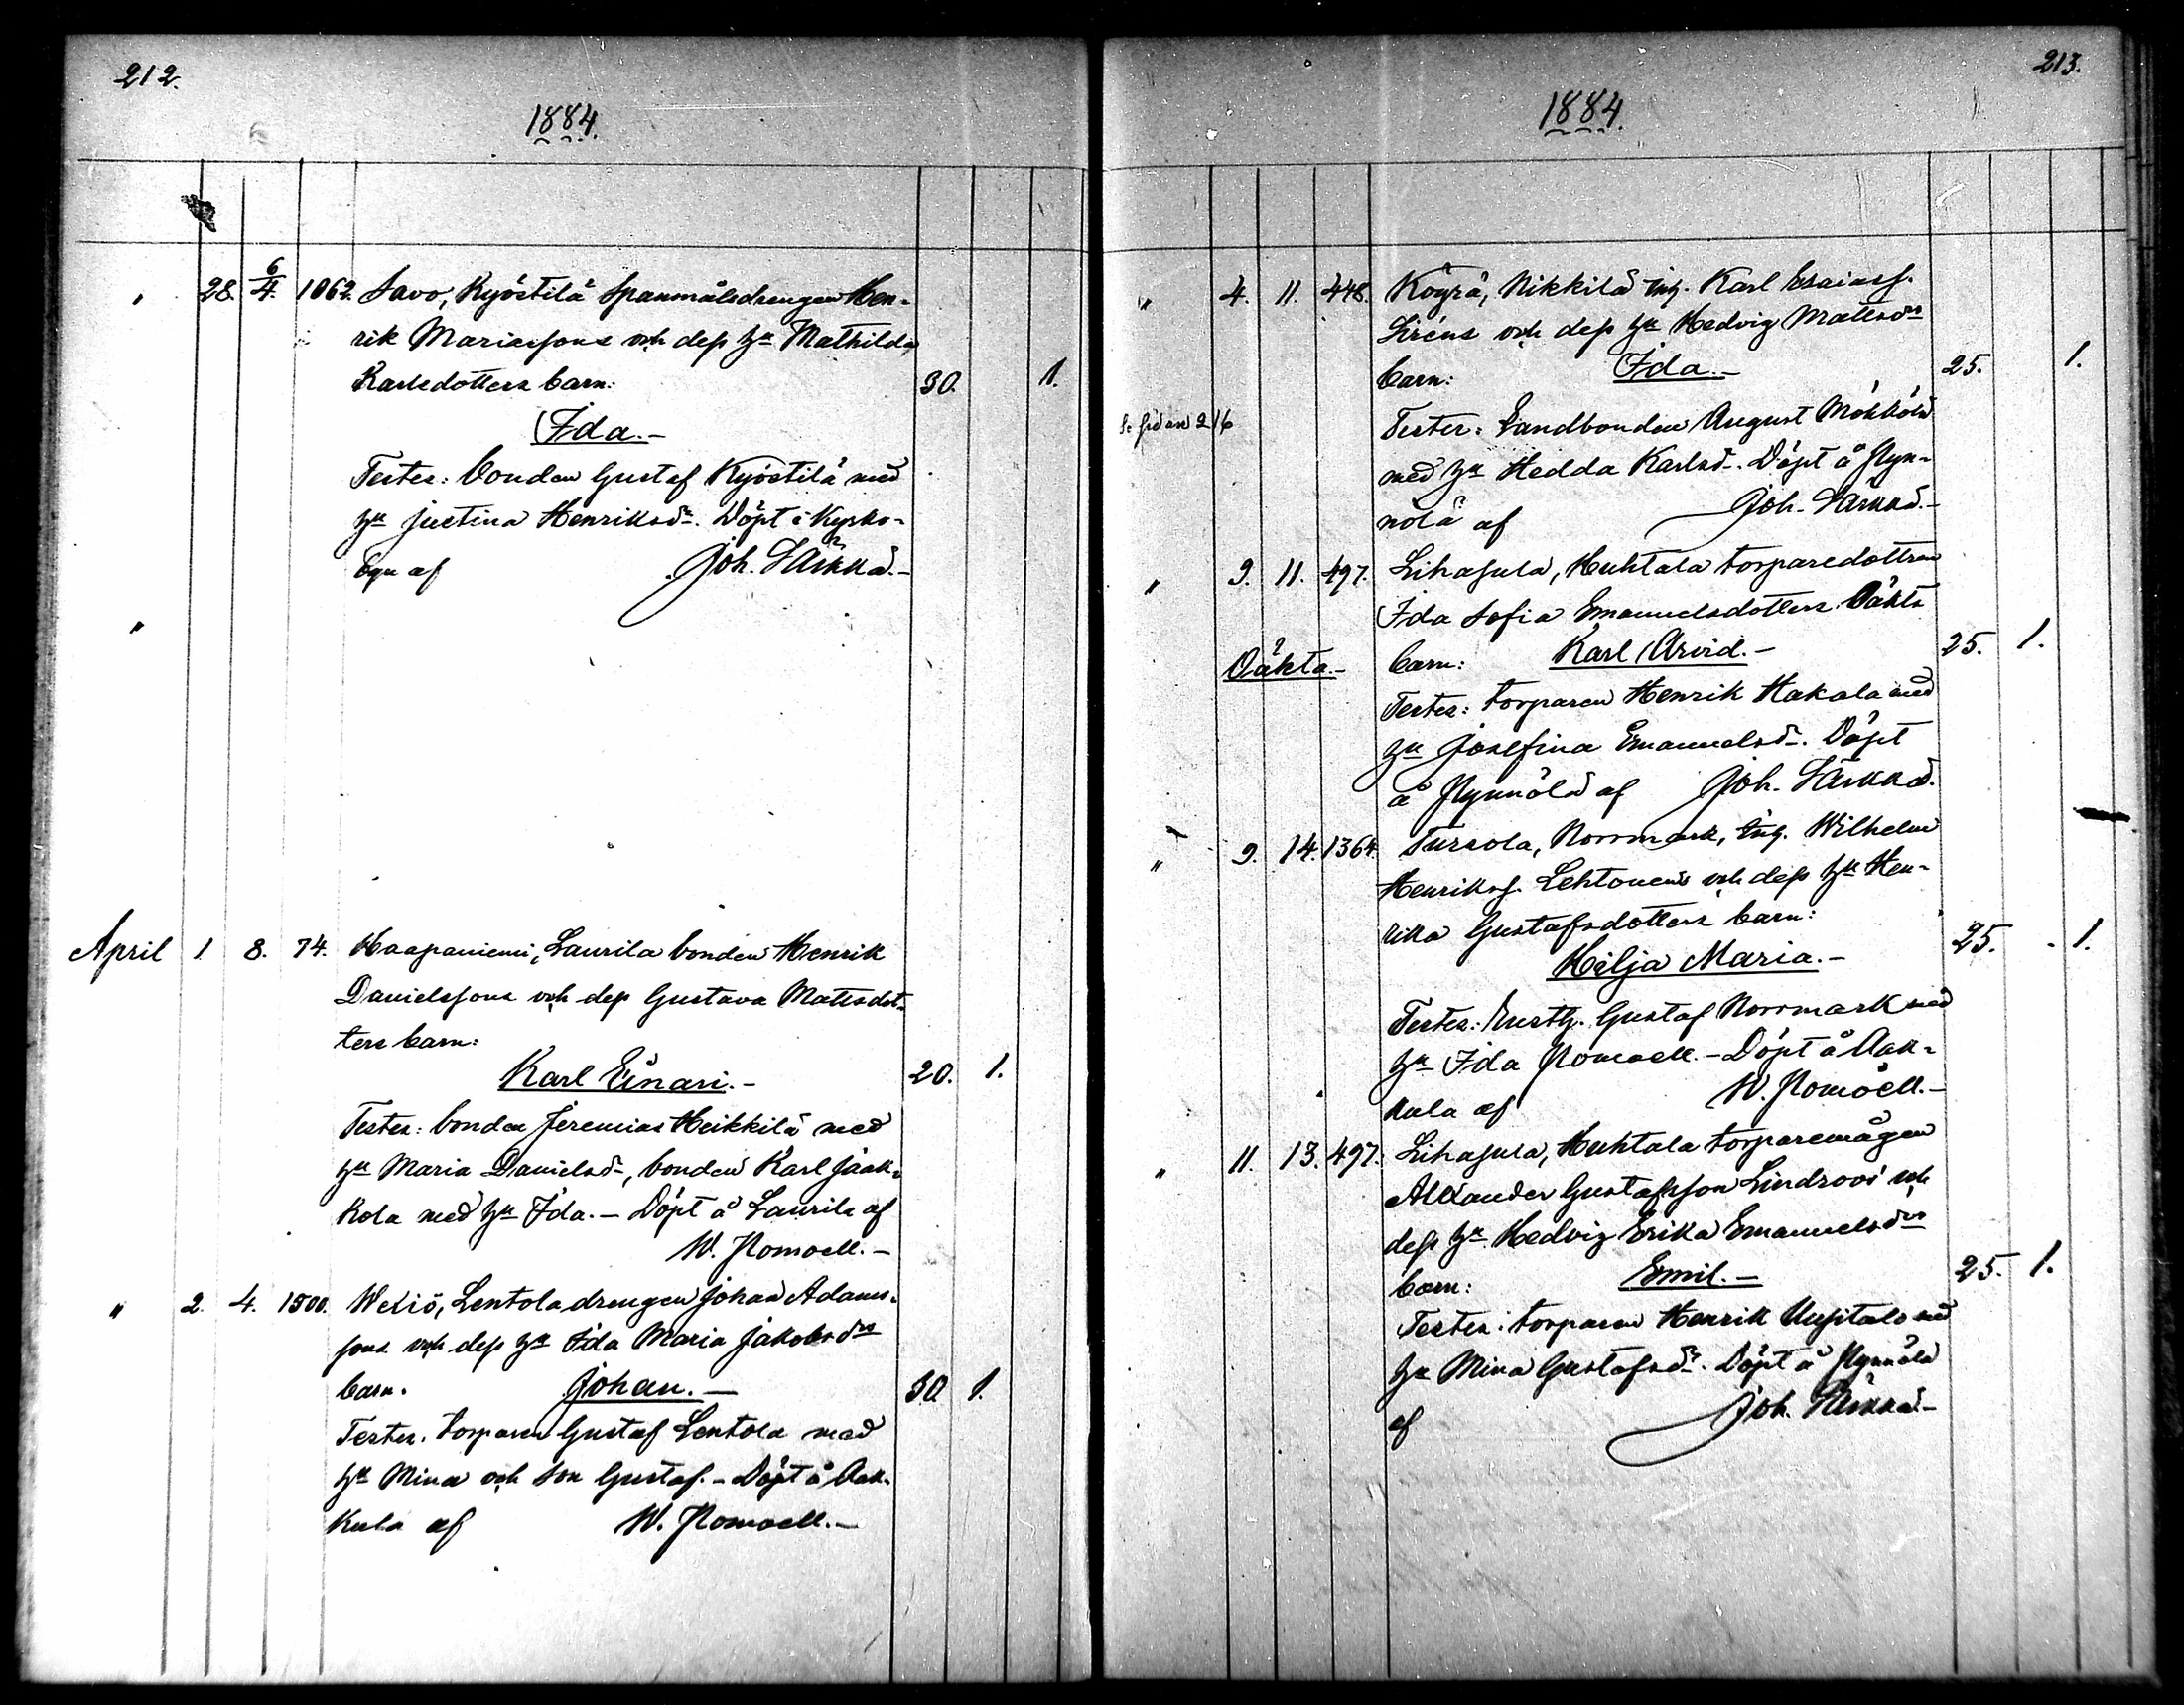 212.
1884.
" 28. 6/4. 1062. Savo, Kyöstilä Spanmålsdrengen Hen-
rik Mariassons och dess hu Mathilda
Karlsdotters barn: 30. 1.
Ida.-
Testes: bonden Gustaf Kyöstilä med
hu Justina Henriksdr. Döpt i Kyrko-
byn af Joh. Särkkä.-
"
April 1. 8. 74. Haapaniemi, Laurila bonden Henrik
Danielssons och dess Gustava Matsdot-
ters barn:
Karl Einari.- 20. 1.
Testes: bonden Jeremias Heikkilä med
hu Maria Danielsd-, bonden Karl Jaak-
kola med hu Ida.- Döpt å Laurila af
W. Nomoell.-
" 2. 4. 1500. Weliö, Lentola drengen Johan Adams-
sons och dess hu Ida Maria Jakobsdrs
barn. Johan.- 30. 1.
Testes. torparen Gustaf Lentola med
hu Mina och son Gustaf.- Döpt å Aak-
kula af W. Nomoell.-
213.
1884.
" 4. 11. 448. Köyrä, Nikkilä inh. Karl Esaiass.
Siréns och dess hu Hedvig Matsdrs
barn: Ida.- 25. 1.
Se sidan 216 Testes: Landbonden August Mökkölä
med hu Hedda Karlsd-. Döpt å Hyn-
nölä af Joh. Särkkä.-
" 9. 11. 497. Lihasula, Huhtala torparedottren
Ida Sofia Emanuelsdotters Oäkta
Oäkta.- barn: Karl Arvid.- 25. 1.
Testes: torparen Henrik Hakala med
hu Josefina Emanuelsd-. Döpt
å Hynnölä af Joh. Särkkä.
" 9. 14. 1364. Tursola, Norrmark, inh. Wilhelm
Henrikss. Lehtonens och dess hu Hen-
rika Gustafsdotters barn:
Hilja Maria.- 25. 1.
Testes: Gustaf Norrmark med
hu Ida Nomoell.- Döpt å Aak-
kula af W. Nomoell.-
" 11. 13. 497. Lihasula, Huhtala torparemågen
Alexander Gustafsson Lindroos' och
dess hu Hedvig Erika Emanuelsdrs
barn: Emil.- 25. 1.
Testes: torparen Henrik Uusitalo med
hu Mina Gustafsdr. Döpt å Hynnölä
af Joh. Särkkä.-